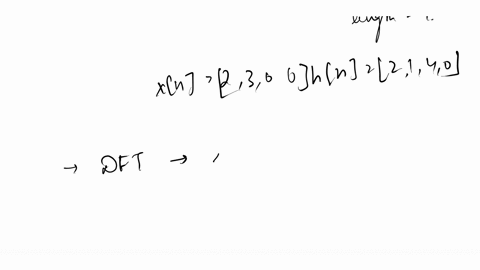 x[n] = [2,3,0 0] h[n] = [2,1,4,0]
→ DFT →